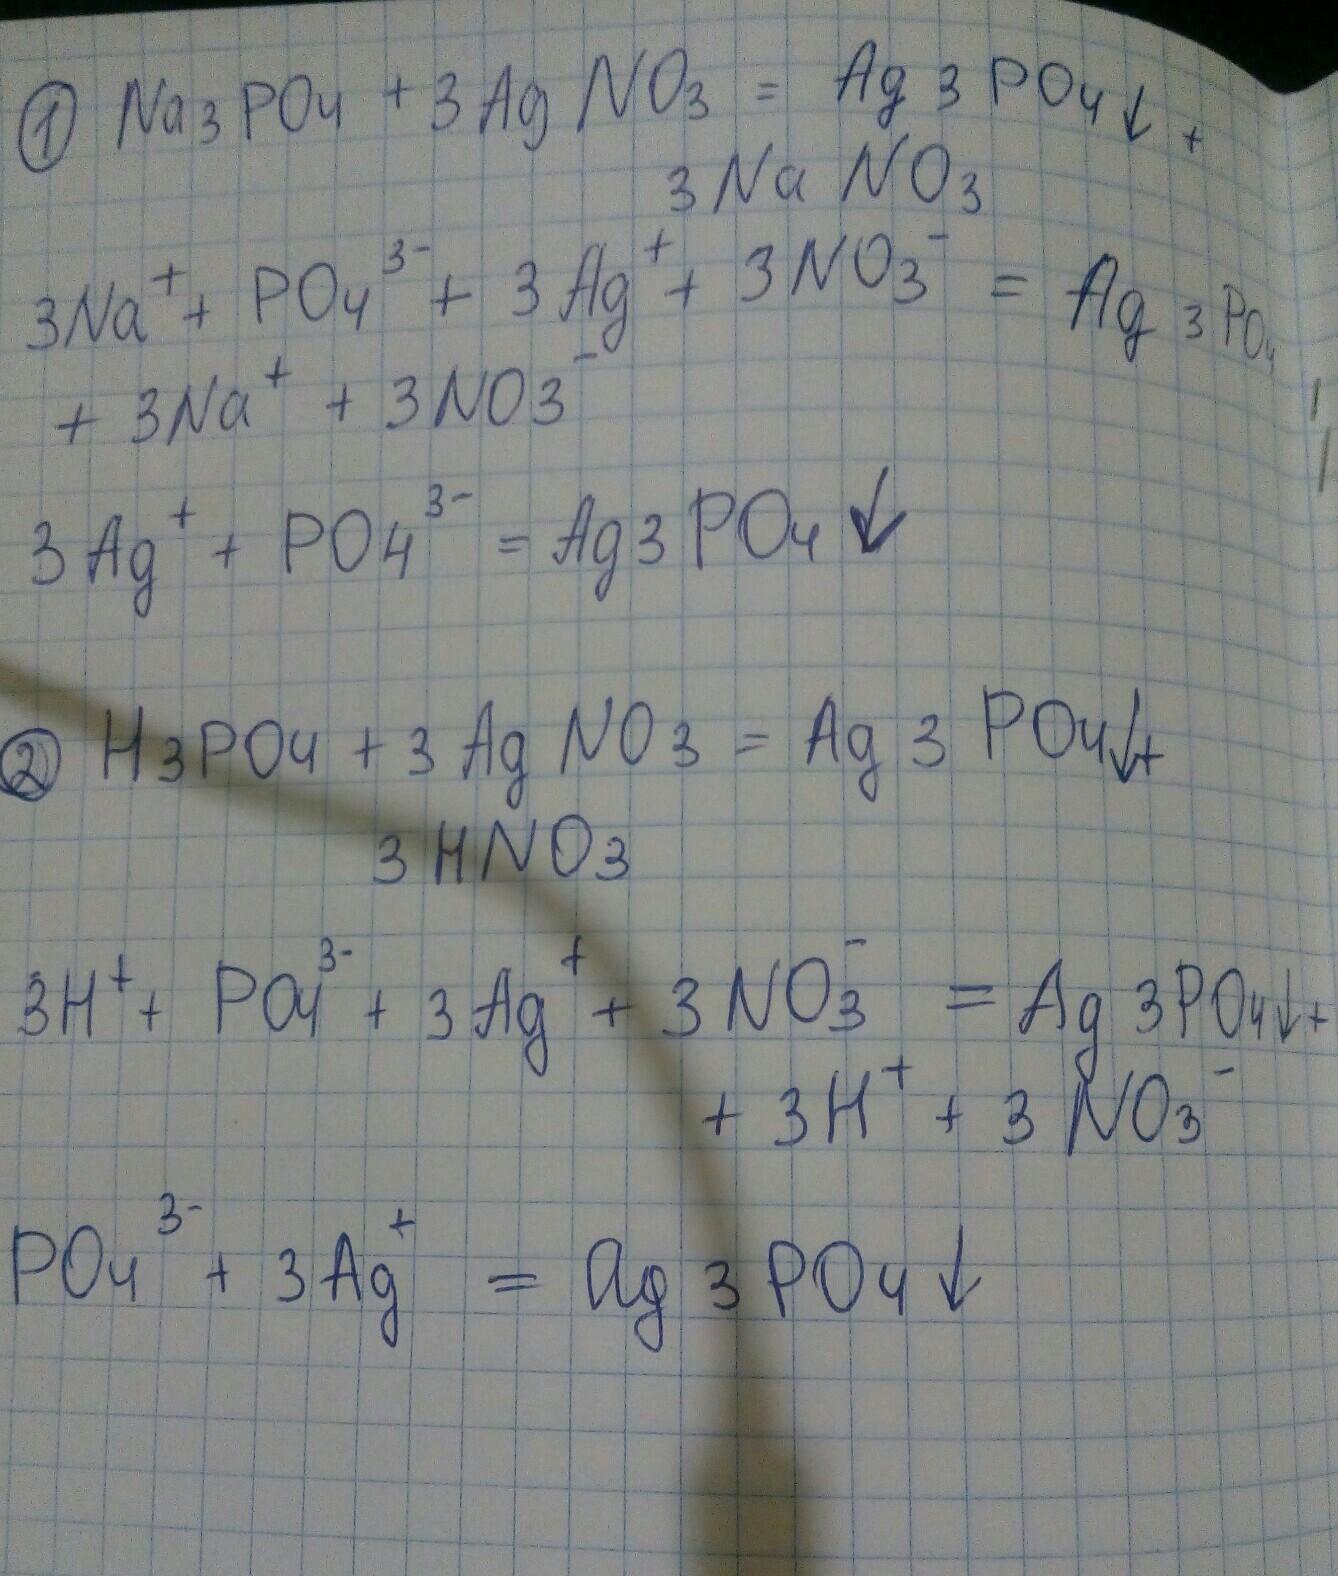 ① Na3PO4 + 3AgNO3 = Ag3PO4↓ +
3NaNO3
3Na⁺ + PO4³⁻ + 3Ag⁺ + 3NO3⁻ = Ag3PO4
+ 3Na⁺ + 3NO3⁻
3Ag⁺ + PO4³⁻ = Ag3PO4↓
② H3PO4 + 3AgNO3 = Ag3PO4↓+
3HNO3
3H⁺ + PO4³⁻ + 3Ag⁺ + 3NO3⁻ = Ag3PO4↓+
+ 3H⁺ + 3NO3⁻
PO4³⁻ + 3Ag⁺ = Ag3PO4↓